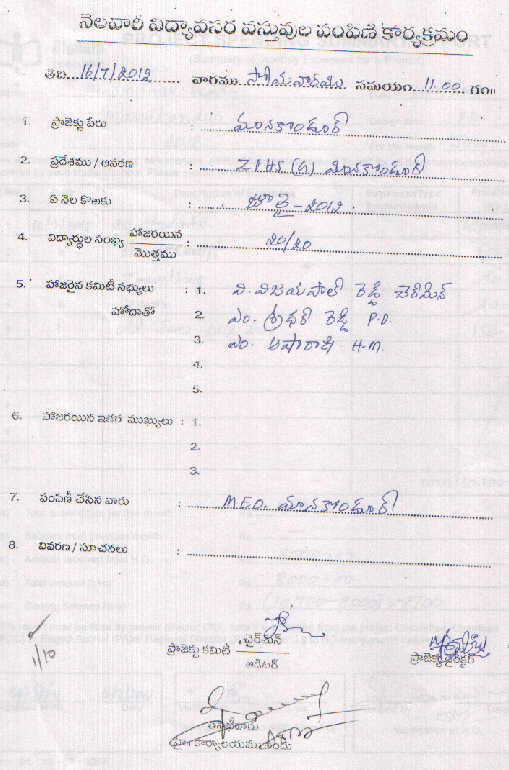 నెలవారీ విద్యావసర వస్తువుల పంపిణీ కార్యక్రమం
తేది 16/7/2012 వారము సోమవారము సమయం 11.00 గం॥
1. ప్రాజెక్టు పేరు : మానకొండూర్
2. ప్రదేశము / ఆవరణ : ZPHS (G) మానకొండూర్
3. ఏ నెల కొఱకు : జూలై - 2012
4. విద్యార్థుల సంఖ్య హాజరయిన / మొత్తము : 20/20
5. హాజరైన కమిటీ సభ్యులు : 1. వి. విజయపాల్ రెడ్డి చైర్మన్
హోదాతో 2. ఎం. శ్రీధర్ రెడ్డి P.D.
3. ఎం. ఉషారాణి H.M.
4.
5.
6. హాజరయిన ఇతర ముఖ్యులు : 1.
2.
3.
7. పంపిణీ చేసిన వారు : M.E.O. మానకొండూర్
8. వివరణ / సూచనలు :
1/10
ప్రాజెక్టు కమిటీ చైర్మన్
ఆడిటర్
ప్రాజెక్టు డైరెక్టర్